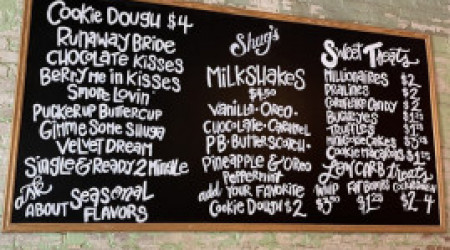 Cookie Dough $4
Runaway Bride
Chocolate Kisses
Berry me in Kisses
Smore Lovin
Pucker up Buttercup
Gimme Some Shuga
Velvet Dream
Single & Ready 2 Mingle
ask ABOUT Seasonal FLAVORS
Shug's
MILKSHAKES
$4.50
Vanilla · Oreo ·
Chocolate · Caramel
PB · Butterscotch ·
Pineapple & Oreo
Peppermint
add your favorite
Cookie Dough $2
Sweet Treats
Millionaires $2
Pralines $2
Candy $2
Buckeyes
Truffles
Low Carb Treats
Fat Bombs
$3.50 $1.25 $2 4